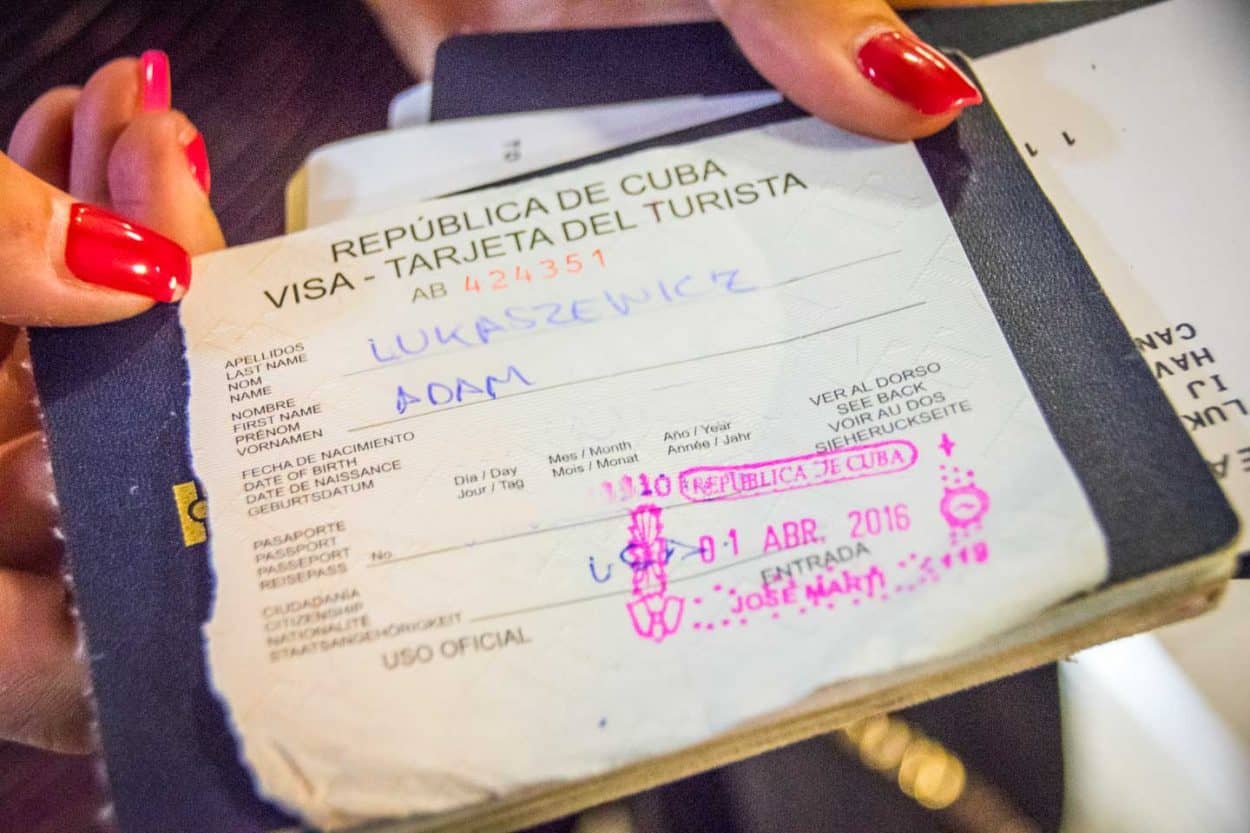 REPÚBLICA DE CUBA
VISA - TARJETA DEL TURISTA
AB 424351
APELLIDOS
LAST NAME
NOM
NAME
LUKASZEWICZ
NOMBRE
FIRST NAME
PRÉNOM
VORNAMEN
ADAM
FECHA DE NACIMIENTO
DATE OF BIRTH
DATE DE NAISSANCE
GEBURTSDATUM
Día / Day
Jour / Tag
Mes / Month
Mois / Monat
Año / Year
Année / Jahr
VER AL DORSO
SEE BACK
VOIR AU DOS
SIEHERUCKSEITE
PASAPORTE
PASSPORT
PASSEPORT
REISEPASS
No.
REPUBLICA DE CUBA
01 ABR. 2016
ENTRADA
JOSE MARTI
CIUDADANÍA
CITIZENSHIP
NATIONALITÉ
STAATSANGEHÖRIGKEIT
USO OFICIAL
CAN
HAV
IJ
LUK